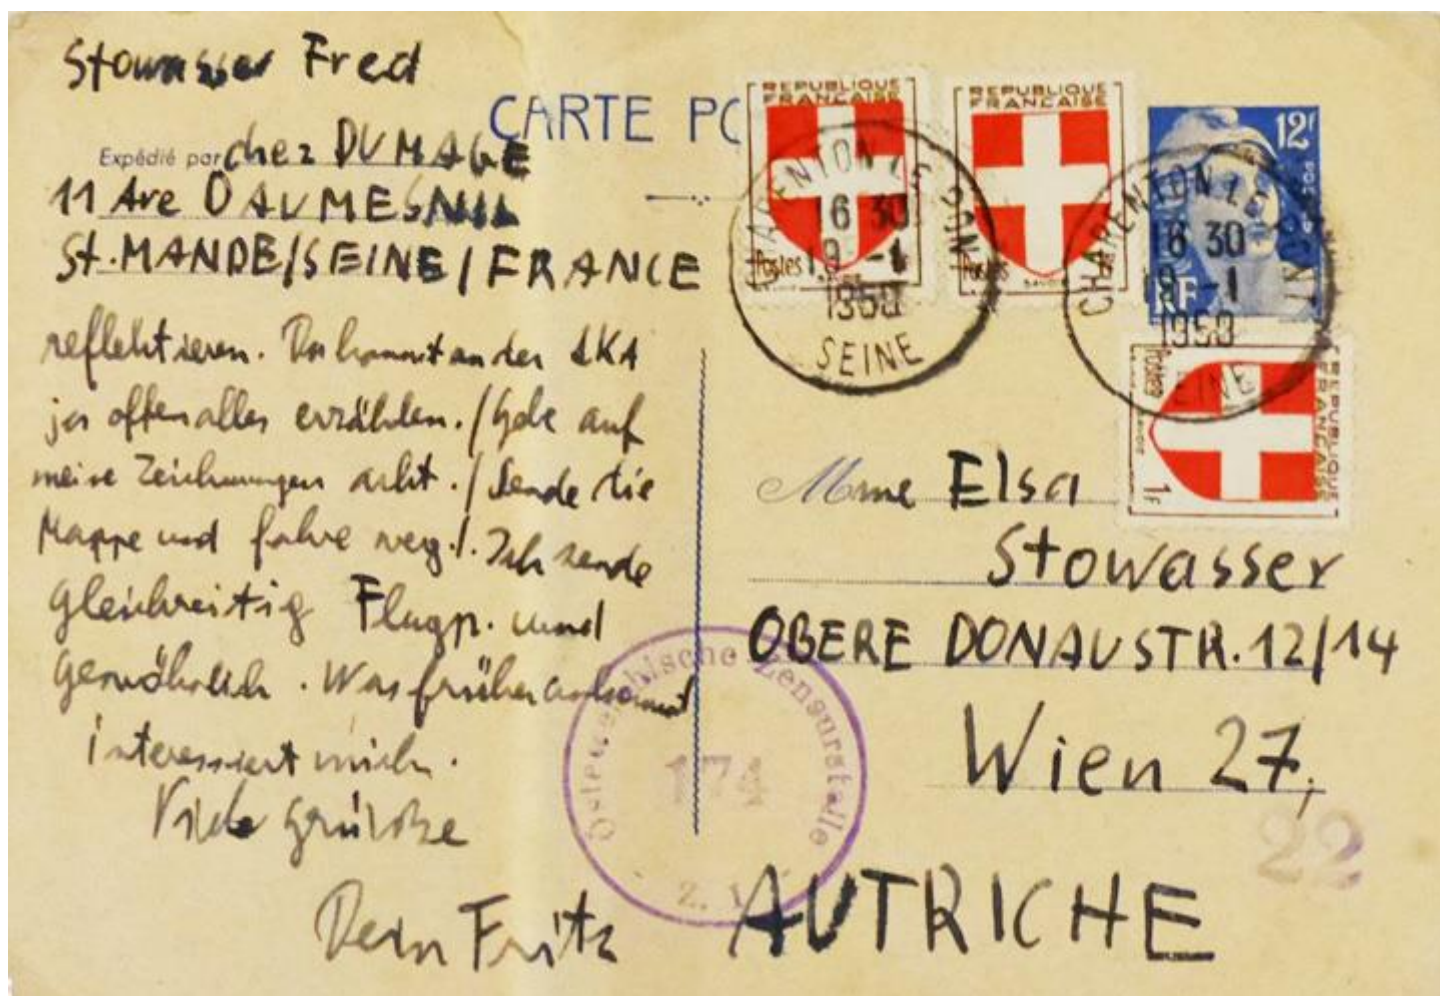 Stowasser Fred
CARTE PO
Expédié par chez DUMAGE
11 Ave DAUMESNIL
St. MANDE/SEINE/FRANCE
reflektieren. Du kannst an der AKA
ja offen alles erzählen. / Gebe auf
meine Zeichnungen acht. / Sende die
Mappe und fahre weg. /. Ich sende
gleichzeitig Flugp. und
gewöhnlich. Was früher ankommt
interessiert mich.
Viele Grüsse
Dein Fritz
REPUBLIQUE
FRANCAISE
Postes
REPUBLIQUE
FRANCAISE
Postes
SAVOIE
12f
POSTES
RF
REPUBLIQUE
FRANCAISE
Postes
SAVOIE
1F
CHARENTON LE PONT
16 30
19 -1
1950
SEINE
CHARENTON LE PONT
16 30
19 -1
1950
SEINE
Mme Elsa
Stowasser
OBERE DONAUSTR. 12/14
Wien 27,
AUTRICHE
Österreichische Zensurstelle
Z. 1
22